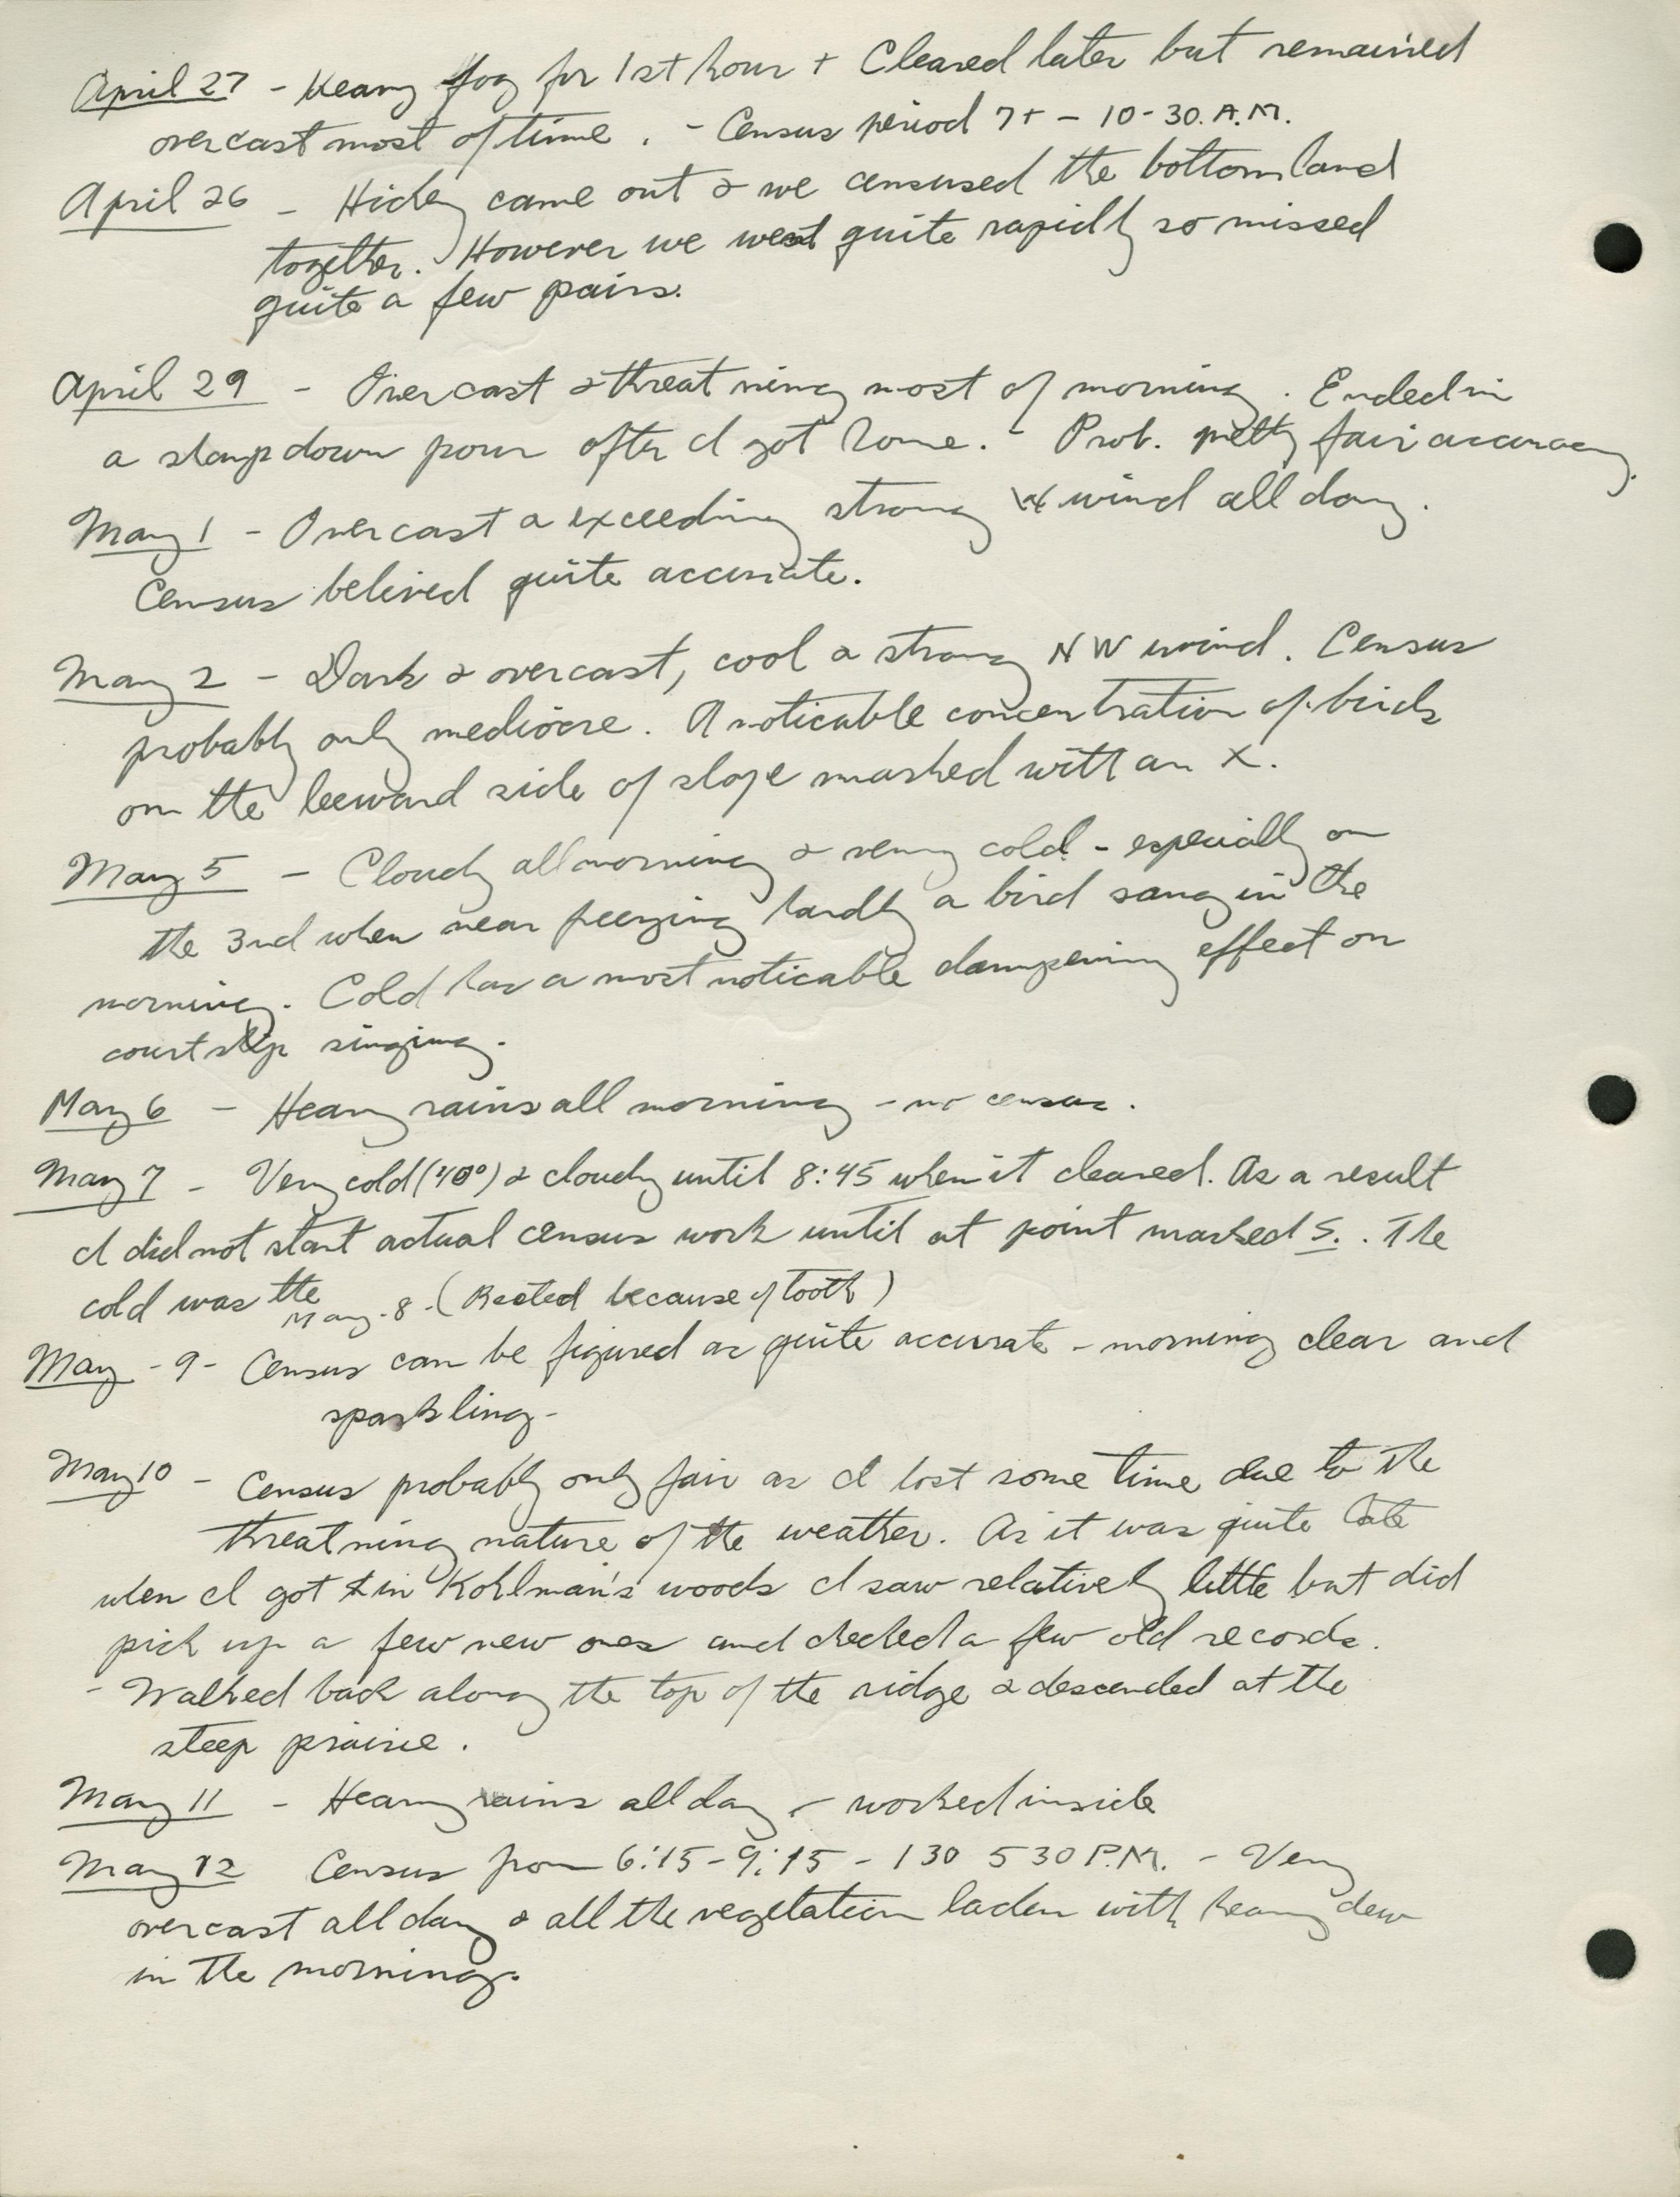 April 27 - Heavy fog for 1st hour + Cleared later but remained
overcast most of time. - Census period 7+ - 10-30. A.M.
April 26 - Hickey came out & we censused the bottomland
together. However we went quite rapidly so missed
quite a few pairs.
April 29 - Overcast & threatning most of morning. Ended in
a down pour after I got home. - Prob. pretty fair accuracy.
May 1 - Overcast & exceeding strong wind all day.
Census belived quite accurate.
May 2 - Dark & overcast, cool & strong NW wind. Census
probably only mediocre. A noticable concentration of birds
on the leeward side of slope marked with an X.
May 5 - Cloudy all morning & very cold - especially on
the 3rd when near freezing hardly a bird sang in the
morning. Cold has a most noticable dampening effect on
courtship singing.
May 6 - Heavy rains all morning - no census.
May 7 - Very cold (40°) & cloudy until 8:45 when it cleared. As a result
I did not start actual census work until at point marked S. . The
cold was the
May - 8 - (Rested because of tooth)
May - 9 - Census can be figured as quite accurate - morning clear and
sparkling -
May 10 - Census probably only fair as I lost some time due to the
threatning nature of the weather. As it was quite late
when I got in Kohlman's woods I saw relatively little but did
pick up a few new ones and checked a few old records.
- Walked back along the top of the ridge & descended at the
steep prairie.
May 11 - Heavy rains all day - worked inside
May 12 Census from 6:15 - 9:15 - 130 530 P.M. - Very
overcast all day & all the vegetation laden with heavy dew
in the morning.